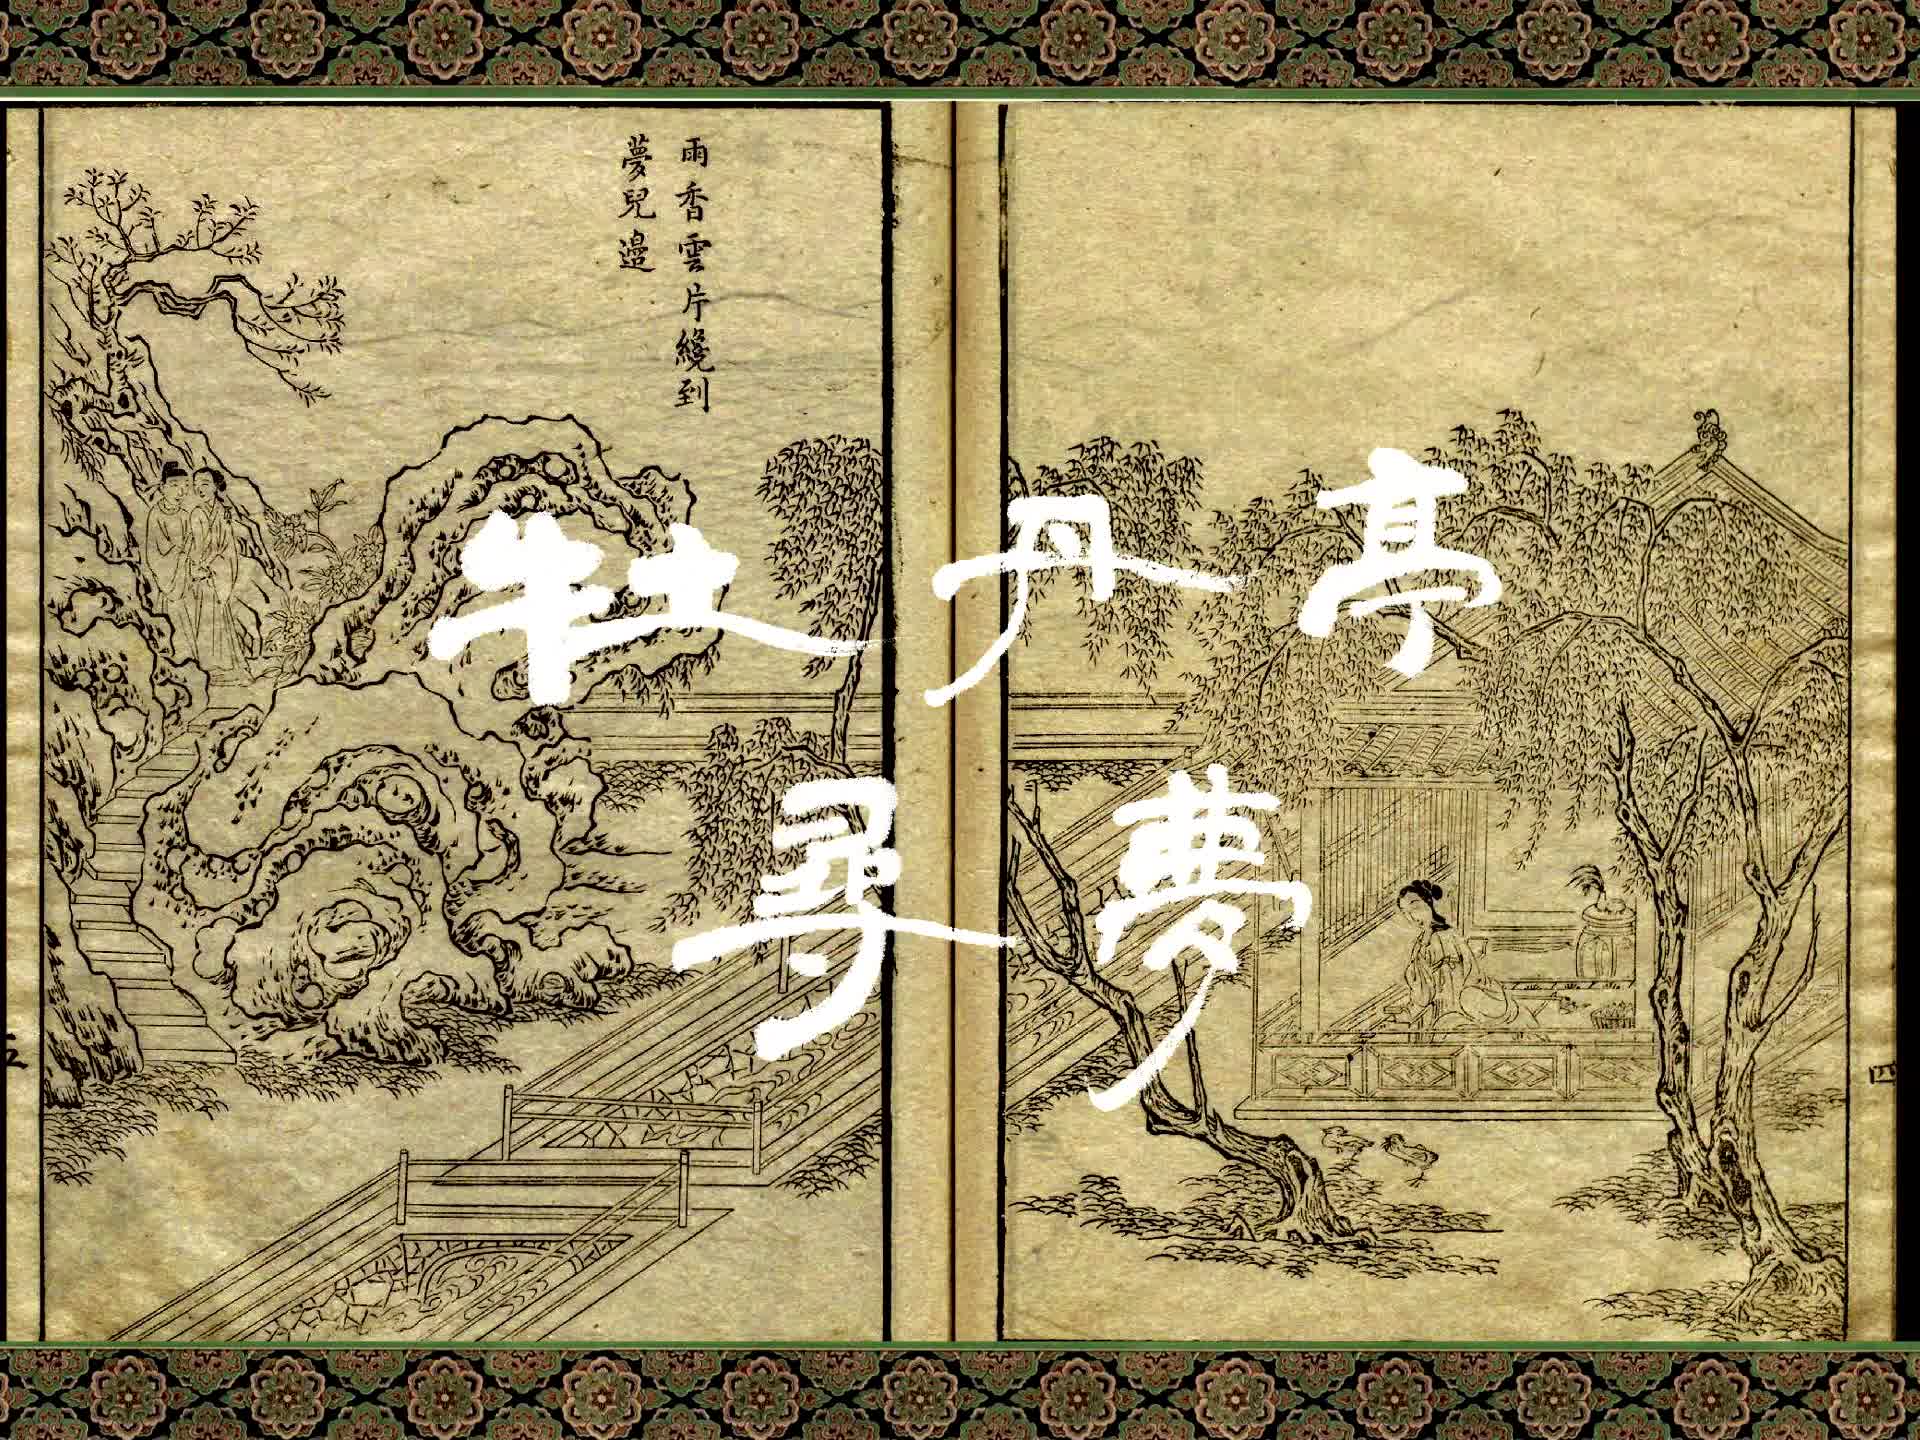 雨香雲片纔到
夢兒邊
牡丹亭
尋夢
四
五